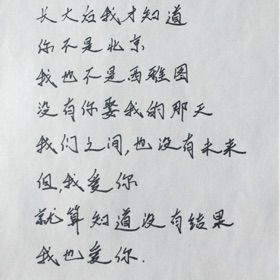 长大后我才知道
你不是北京
我也不是西雅图
没有你娶我的那天
我们之间,也没有未来
但,我爱你
就算知道没有结果
我也爱你.